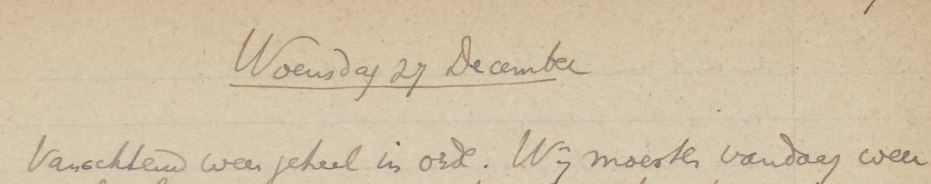 Woensdag 27 December
Vanochtend weer geheel in orde. Wij moesten vandaag weer